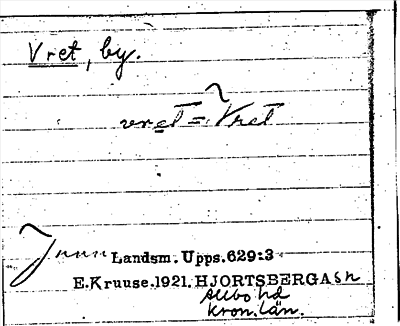 Vret, by.
vret = Vret
Landsm. Upps. 629:3
E.Kruuse.1921. HJORTSBERGA sn
Allbo hd
Kron. län.